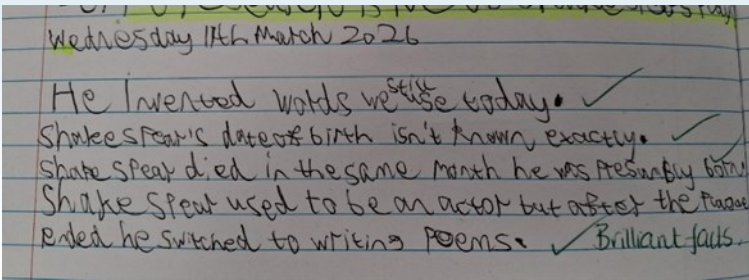 Wednesday 11th March 2026
He Invented words we still use today.
Shakeespear's date of birth isn't known exactly.
Shakespear died in the same month he was presumbly born
Shakespear used to be an actor but after the Plague
ended he switched to writing Poems. Brilliant facts.